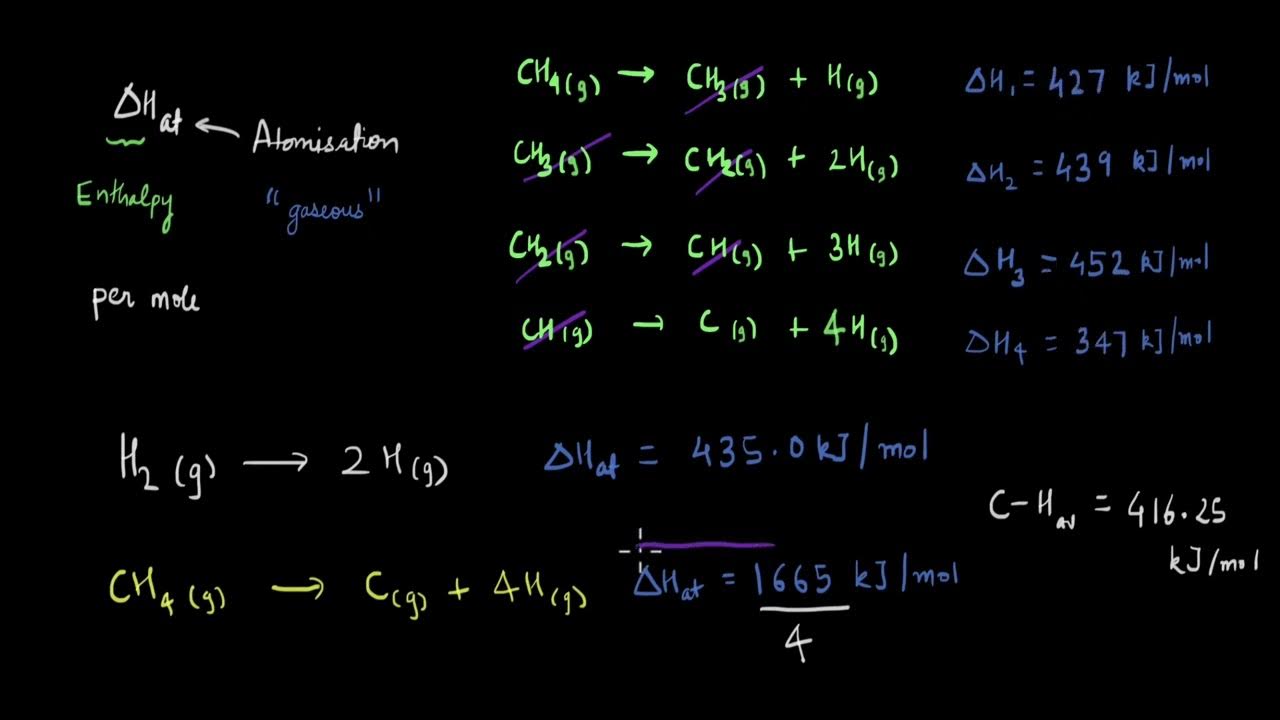 ΔHat ← Atomisation
Enthalpy "gaseous"
per mole
CH₄(g) → CH₃(g) + H(g) ΔH₁ = 427 kJ/mol
CH₃(g) → CH₂(g) + 2H(g) ΔH₂ = 439 kJ/mol
CH₂(g) → CH(g) + 3H(g) ΔH₃ = 452 kJ/mol
CH(g) → C(g) + 4H(g) ΔH₄ = 347 kJ/mol
H₂(g) → 2H(g) ΔHat = 435.0 kJ/mol
C-Hav = 416.25
kJ/mol
CH₄(g) → C(g) + 4H(g) ΔHat = 1665 kJ/mol
4